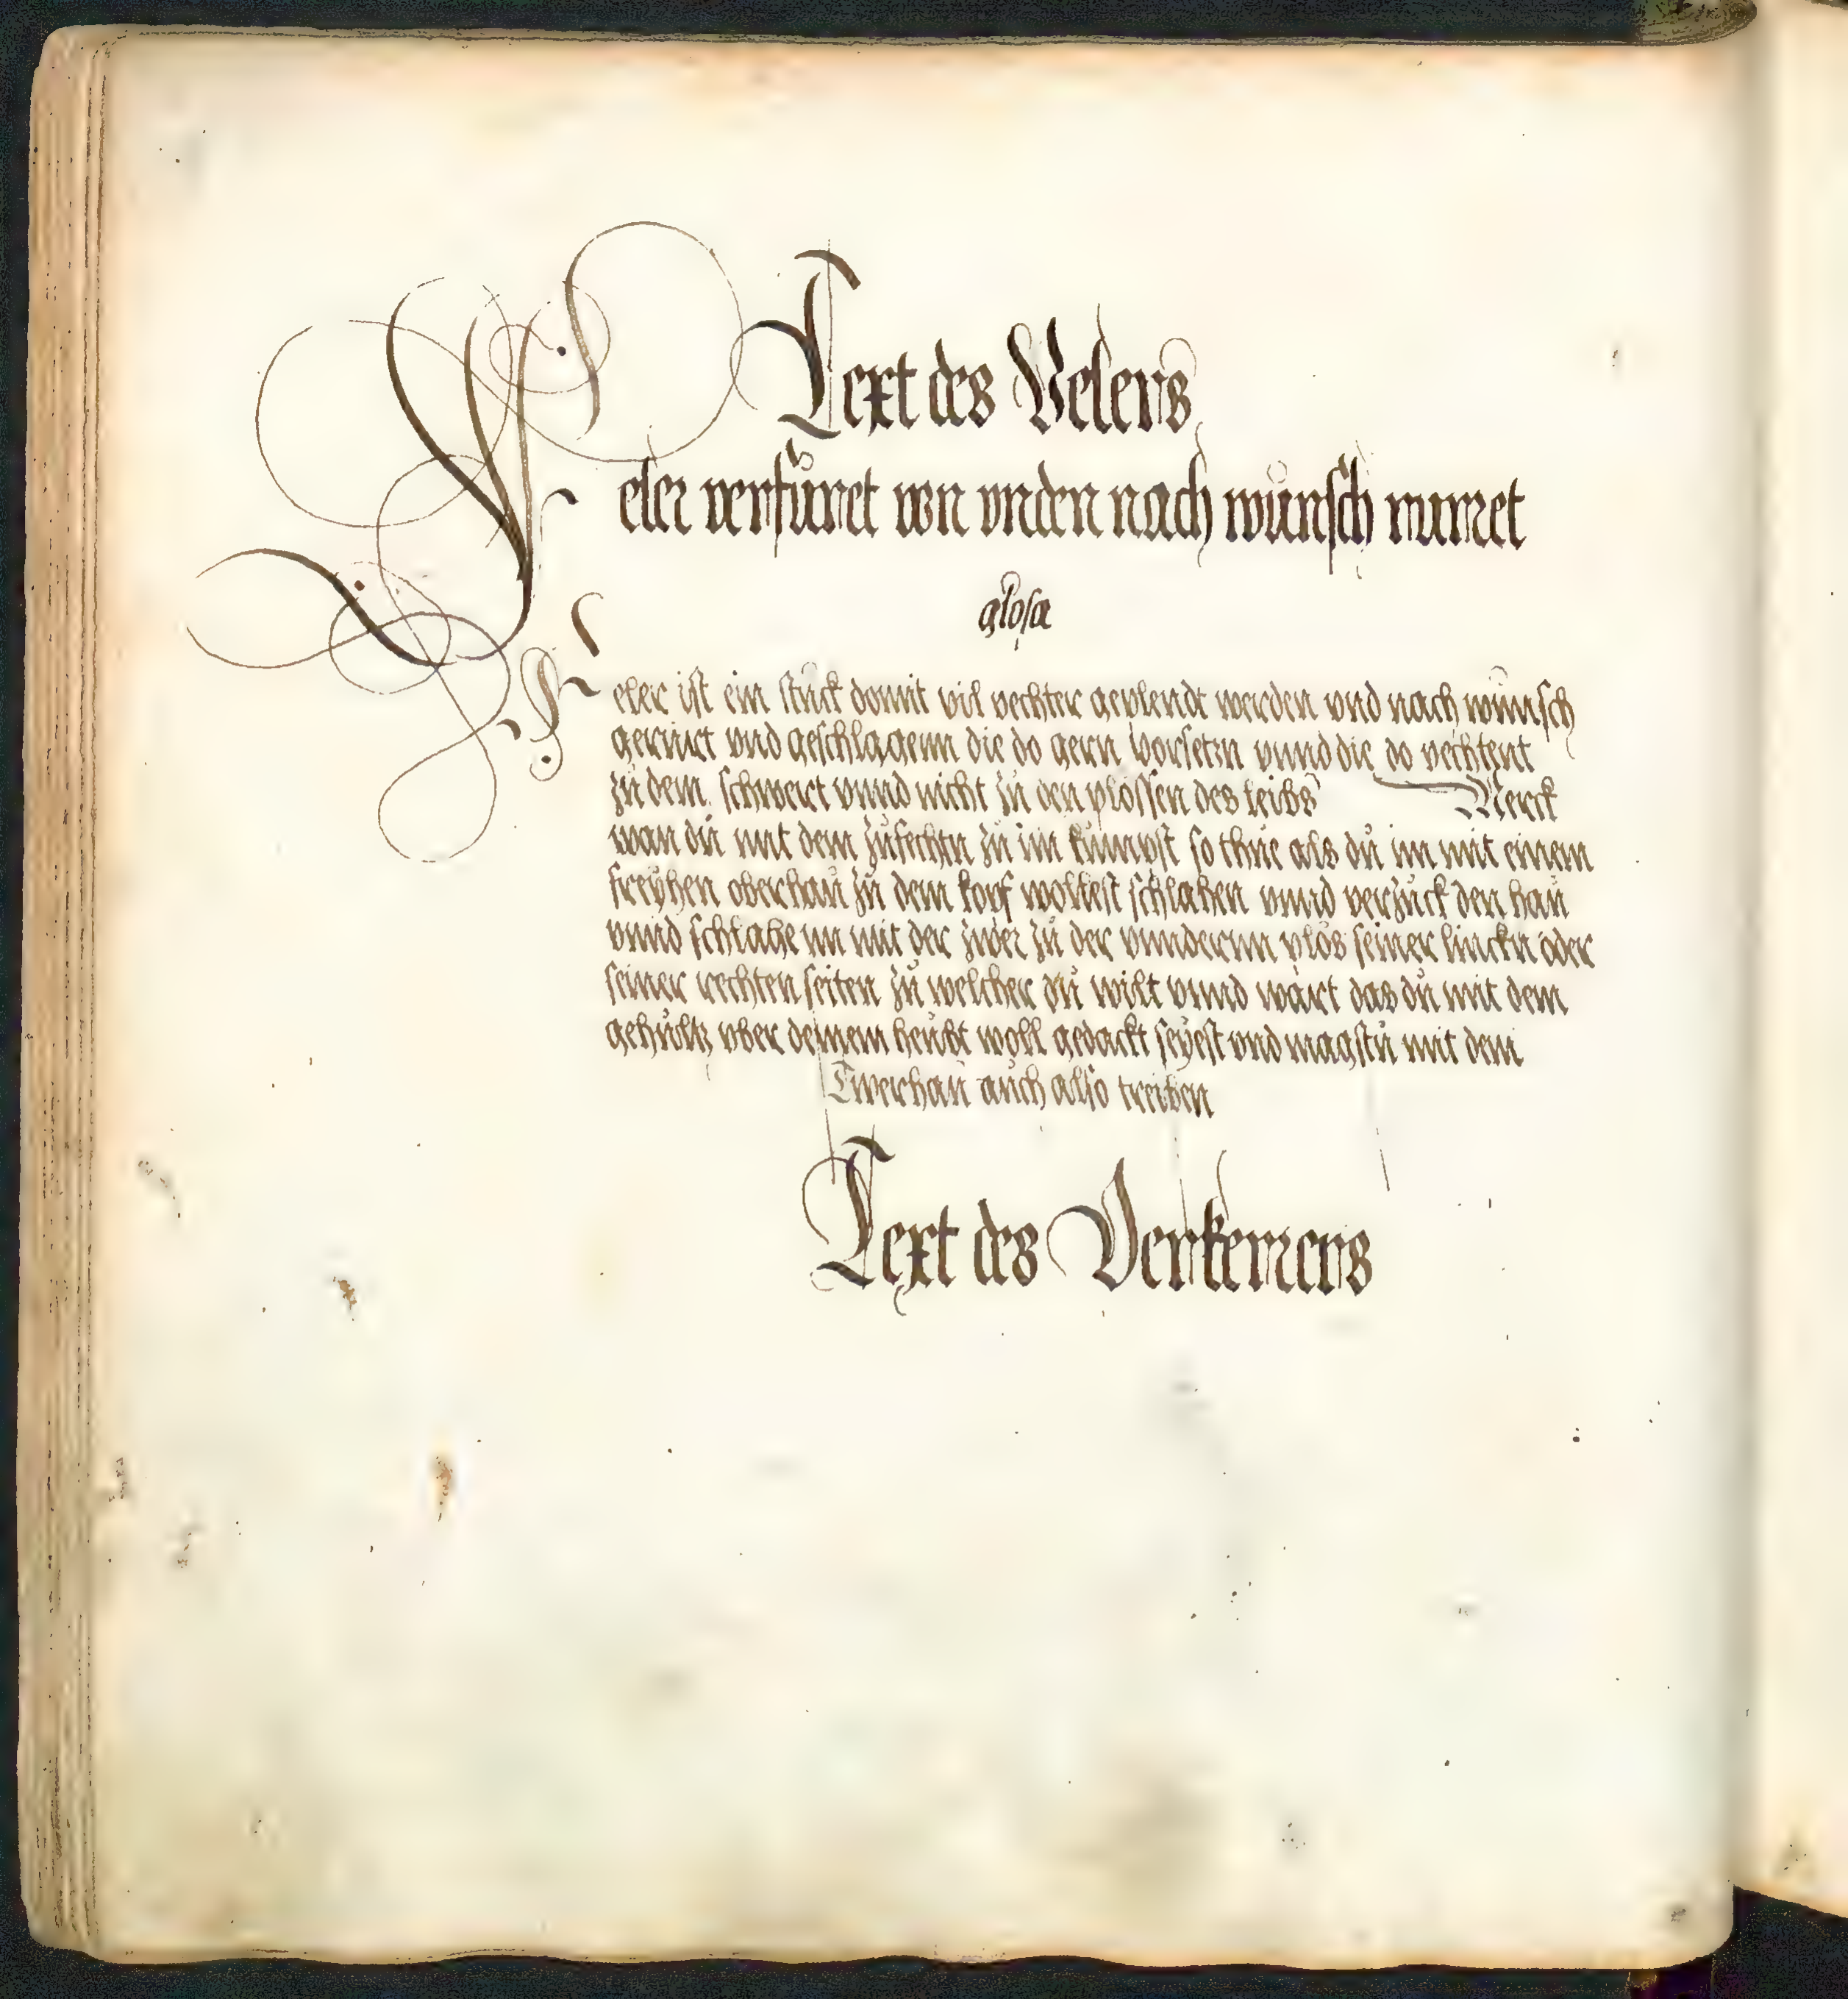 Text des Velers
Veler verfüret von vnden nach wünsch rurret
glosa
Veler ist ein stuck domit vil vechter geplendt werden vnd nach wünsch
gerürt vnd geschlagenn die do gern vorsetzn vnnd die do vechtent
zü dem schwert vnnd nicht zü den plossen des leibs Merck
wan dü mit dem züfechtn zü im kümpst so thüe als dü im mit einem
freyhen oberhaü zü dem kopf wollest schlahen vnnd verzuck den haü
vnnd schlahe im mit der zwer zü der vnndernn plös seiner linckn oder
seiner rechten seiten zü welcher dü wilt vnnd wart das dü mit dem
gehültz vber deinem heübt woll gedackt seyest vnd magstü mit dem
Twerhaü aüch also treiben
Text des Verkerrers